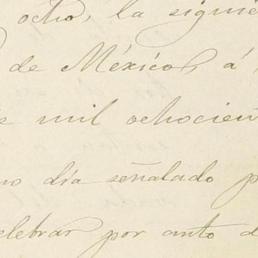 ocho, la siguie
de México, á
mil ochocien
día señalado p
elebrar por anto d